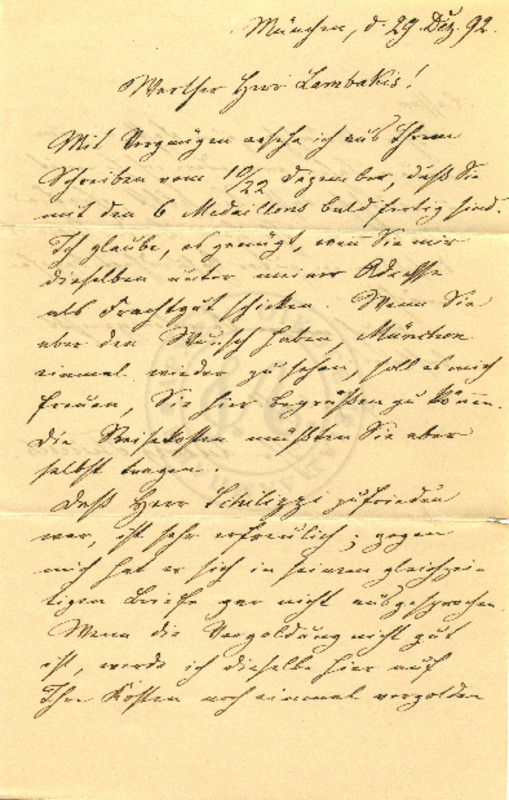 München, d. 29 Dez. 92.
Werther Herr Lambakis!
Mit Vergnügen ersehe ich aus Ihrem
Schreiben vom 10/22 Dezember, daß Sie
mit den 6 Medaillons bald fertig sind.
Ich glaube, es genügt, wen Sie mir
dieselben unter meiner Adresse
als Frachtgut schicken. Wenn Sie
aber den Wunsch haben, München
einmal wieder zu sehen, soll es mich
freuen, Sie hier begrüßen zu können.
Die Reisekosten müßten Sie aber
selbst tragen.
Daß Herr Schilizzi zufrieden
war, ist sehr erfreulich; gegen
mich hat er sich in seinem gleichzei-
tigen Briefe gar nicht ausgesprochen.
Wenn die Vergoldung nicht gut
ist, werde ich dieselbe hier auf
Ihre Kosten noch einmal vergolden